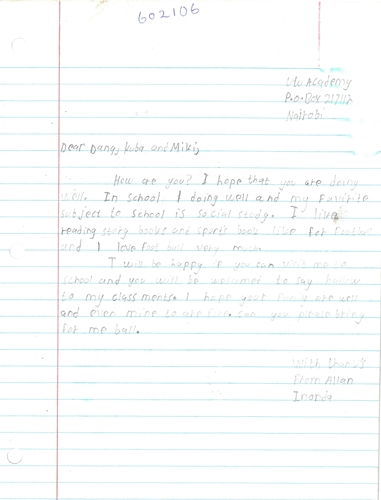 602106
Academy
P.O.Box
Nairobi
Dear Dang, Kuba and Miki,
How are you? I hope that you are doing
well. In school I doing well and my favirite
subject to school is social study. I like
reading story books and sports book like for football
and I love foot ball very much.
I will be happy if you can visit me in
school and you will be welcomed to say
to my class ments. I hope your family are well
and even mine to are fine. can you please bring
for me ball.
With
From Allan